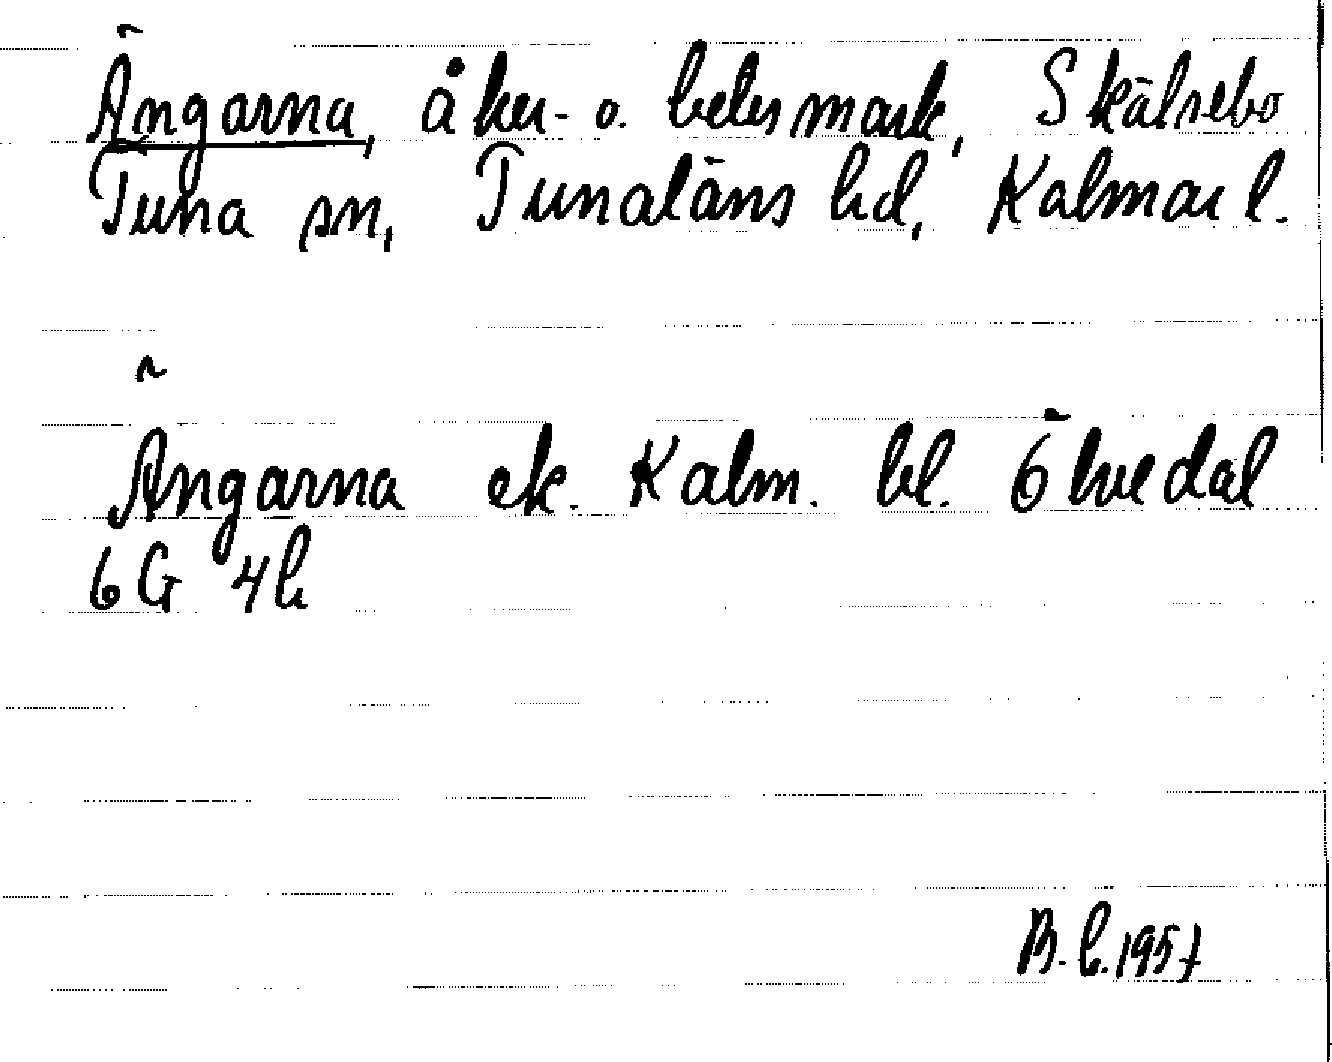 Ängarna, åker- o. betesmark, Skälsebo
Tuna sn, Tunaläns hd, Kalmar l.
Ängarna ek. Kalm. bl. Ölvedal
6G 4h
B.L. 1957